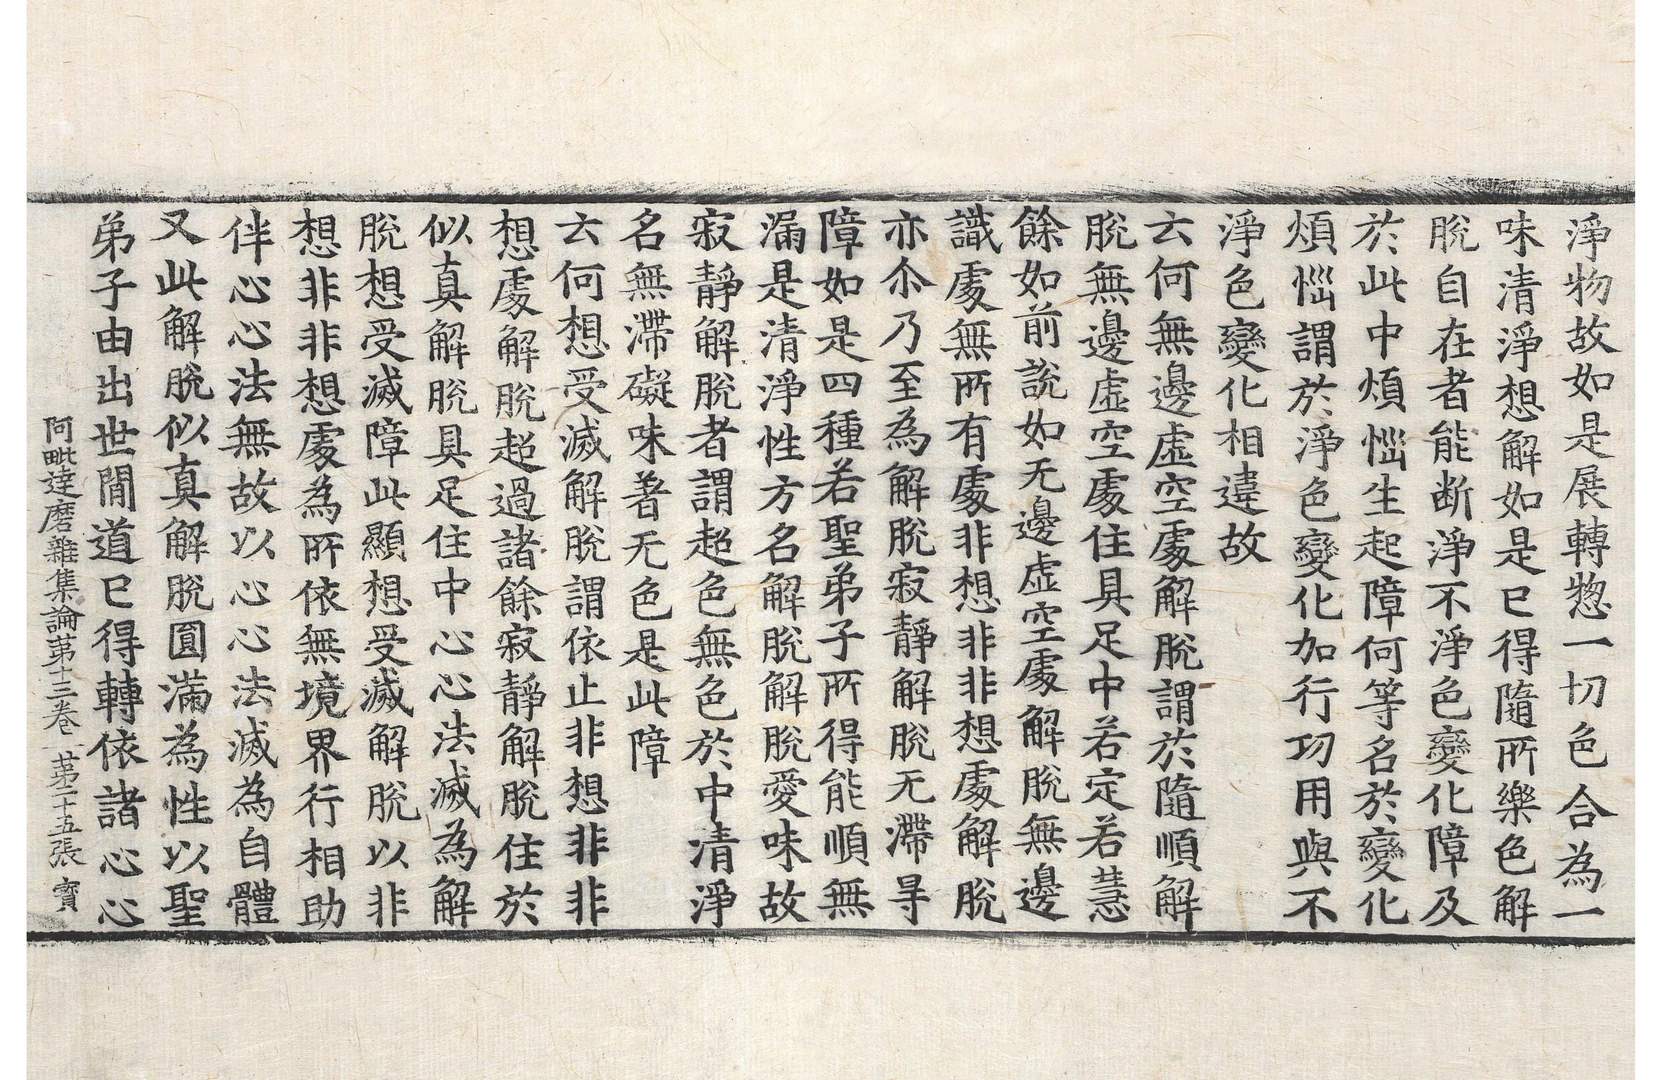 淨物故如是展轉惣一切色合為一
味清淨想解如是已得隨所樂色解
脫自在者能断淨不淨色變化障及
於此中煩惱生起障何等名於變化
煩惱謂於淨色變化加行功用與不
淨色變化相違故
云何無邊虛空處解脫謂於隨順解
脫無邊虛空處住具足中若定若慧
餘如前說如无邊虛空處解脫無邊
識處無所有處非想非非想處解脫
亦尒乃至為解脫寂靜解脫无滯㝵
障如是四種若聖弟子所得能順無
漏是清淨性方名解脫解脫愛味故
寂靜解脫者謂超色無色於中清淨
名無滯礙味著无色是此障
云何想受滅解脫謂依止非想非非
想處解脫超過諸餘寂靜解脫住於
似真解脫具足住中心心法滅為解
脫想受滅障此顯想受滅解脫以非
想非非想處為所依無境界行相助
伴心心法無故以心心法滅為自體
又此解脫似真解脫圓滿為性以聖
弟子由出世間道已得轉依諸心心
阿毗達磨雜集論第十三卷 第二十五張 寶